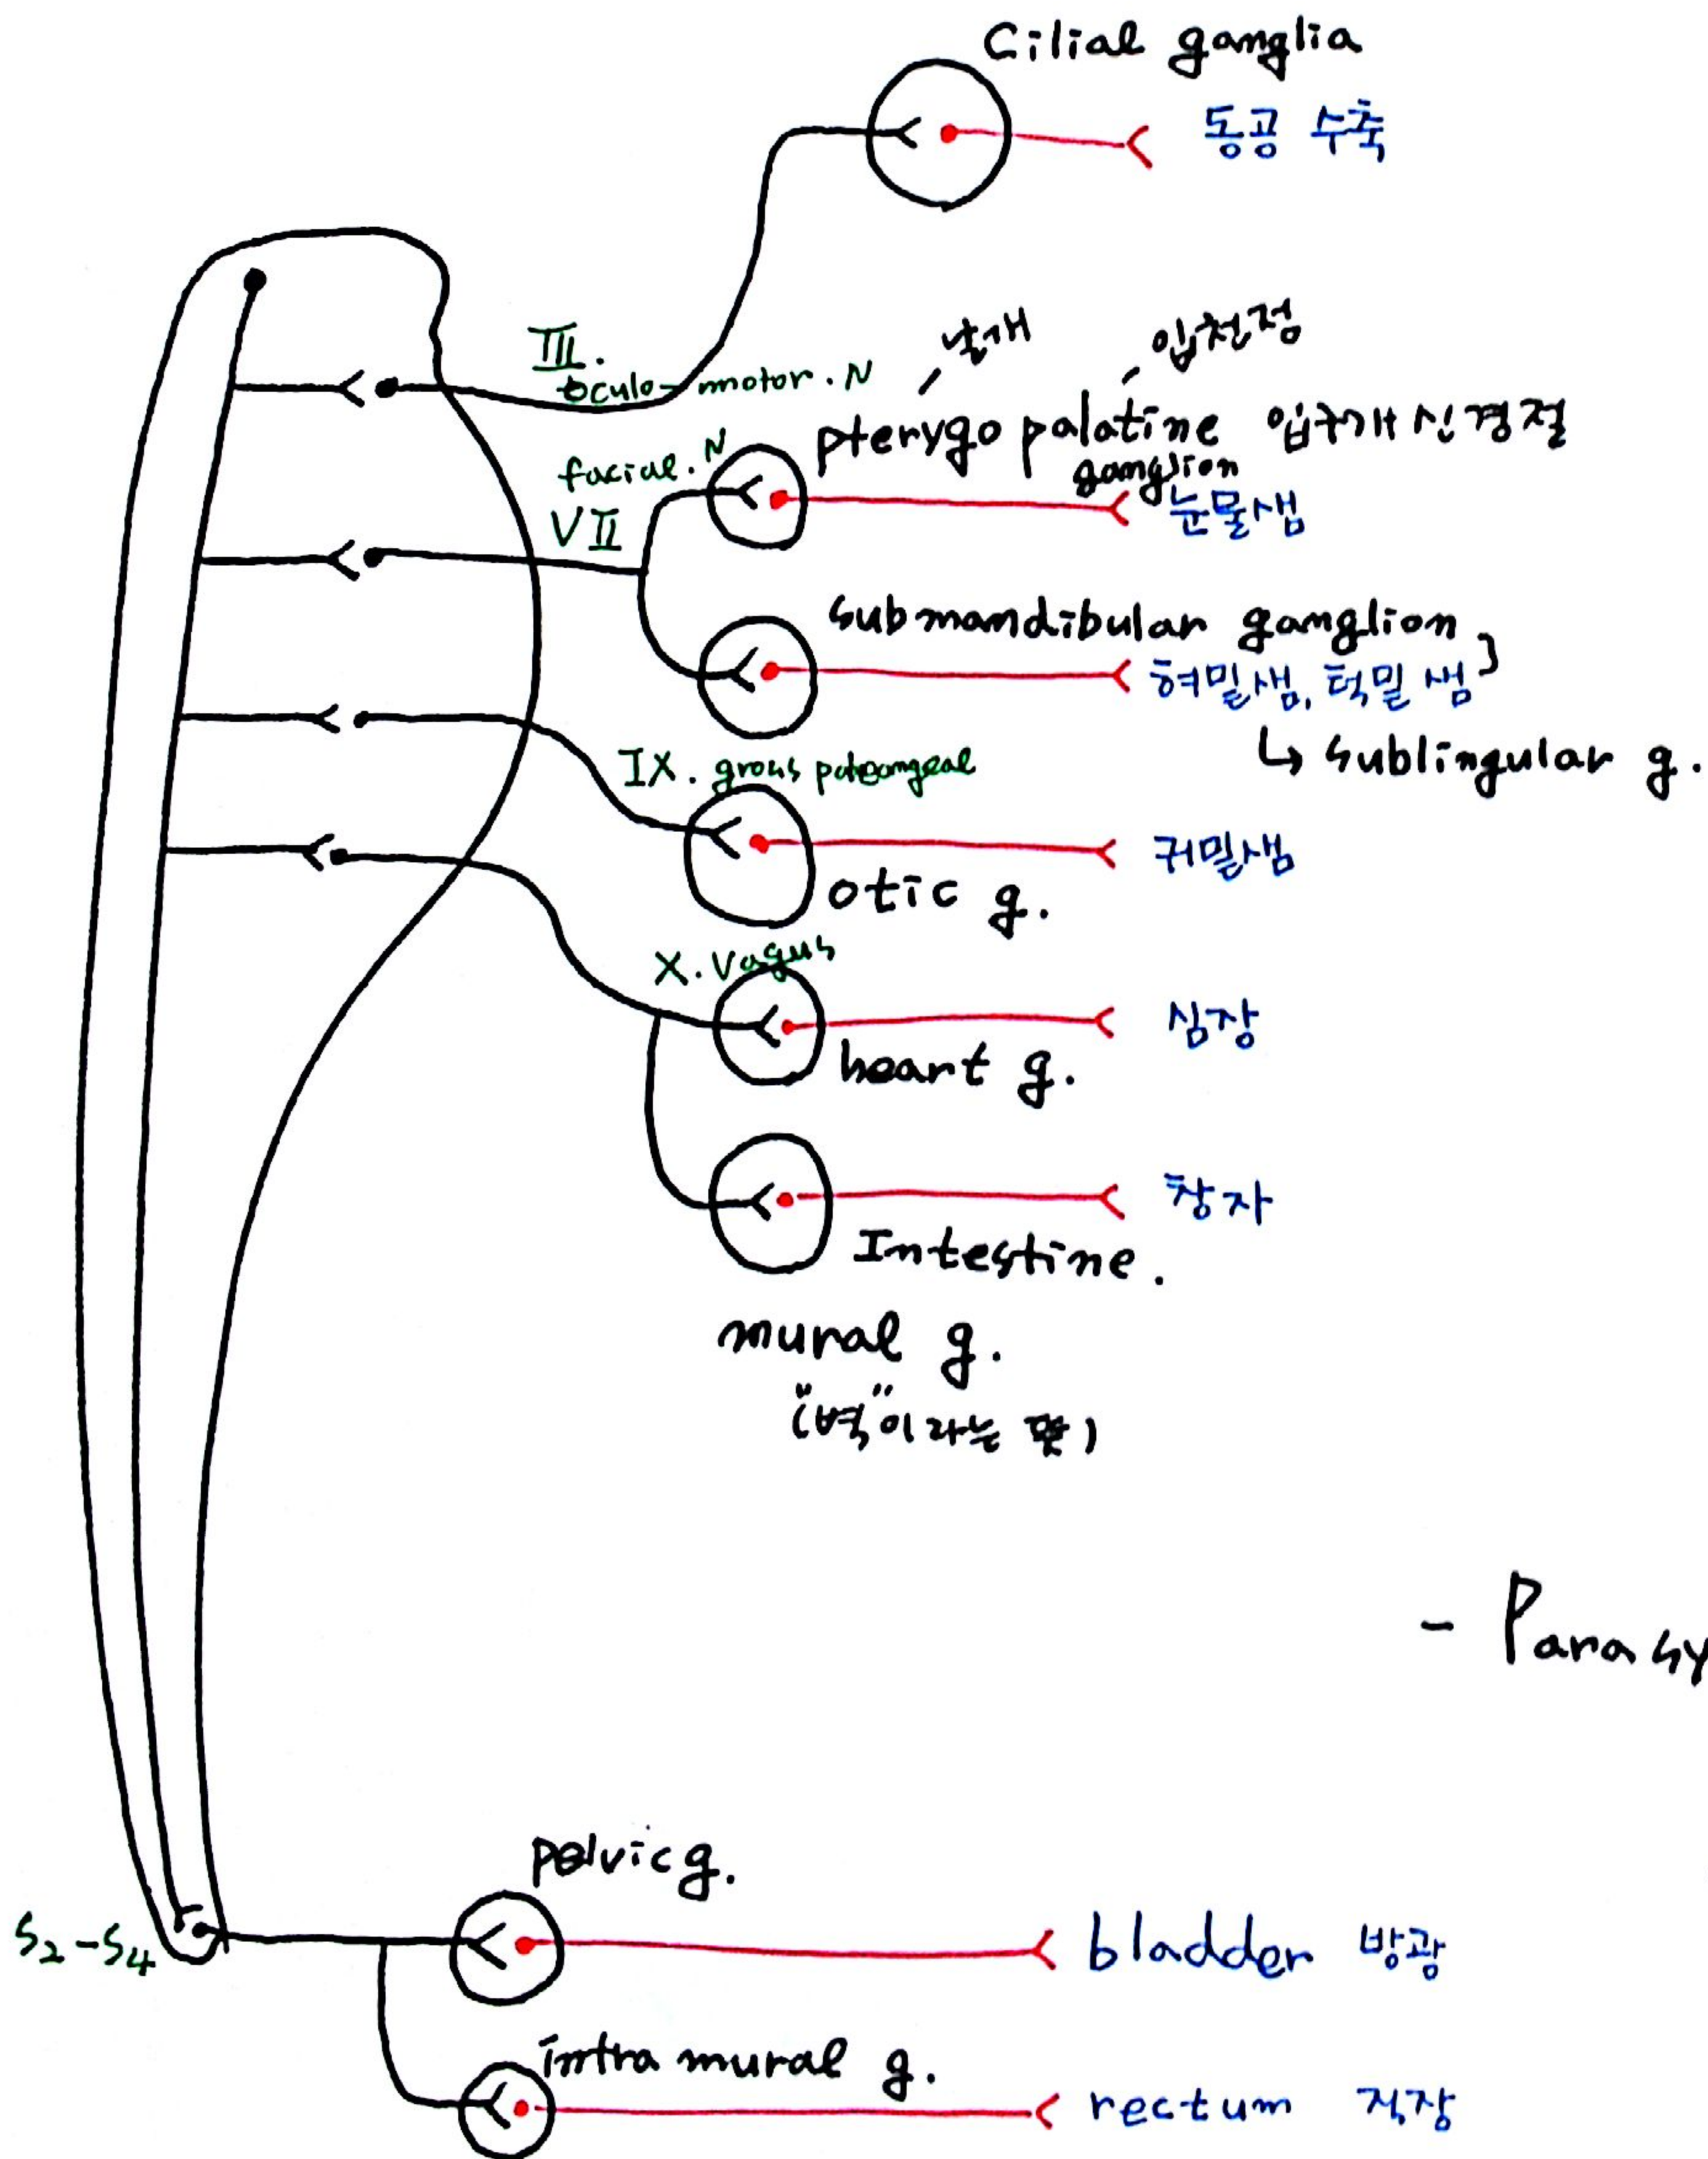 Cilial ganglia
동공 수축
III.
oculo-motor. N
날개
입천정
pterygo palatine 입천개신경절
ganglion
facial. N
VII
눈물샘
submandibular ganglion
혀밑샘, 턱밑샘
↳ sublingular g.
IX.
귀밑샘
otic g.
X. Vagus
심장
heart g.
창자
Intestine.
mural g.
("벽"이라는 뜻)
- Parasy
pelvic g.
S2-S4
bladder 방광
intra mural g.
rectum 직장